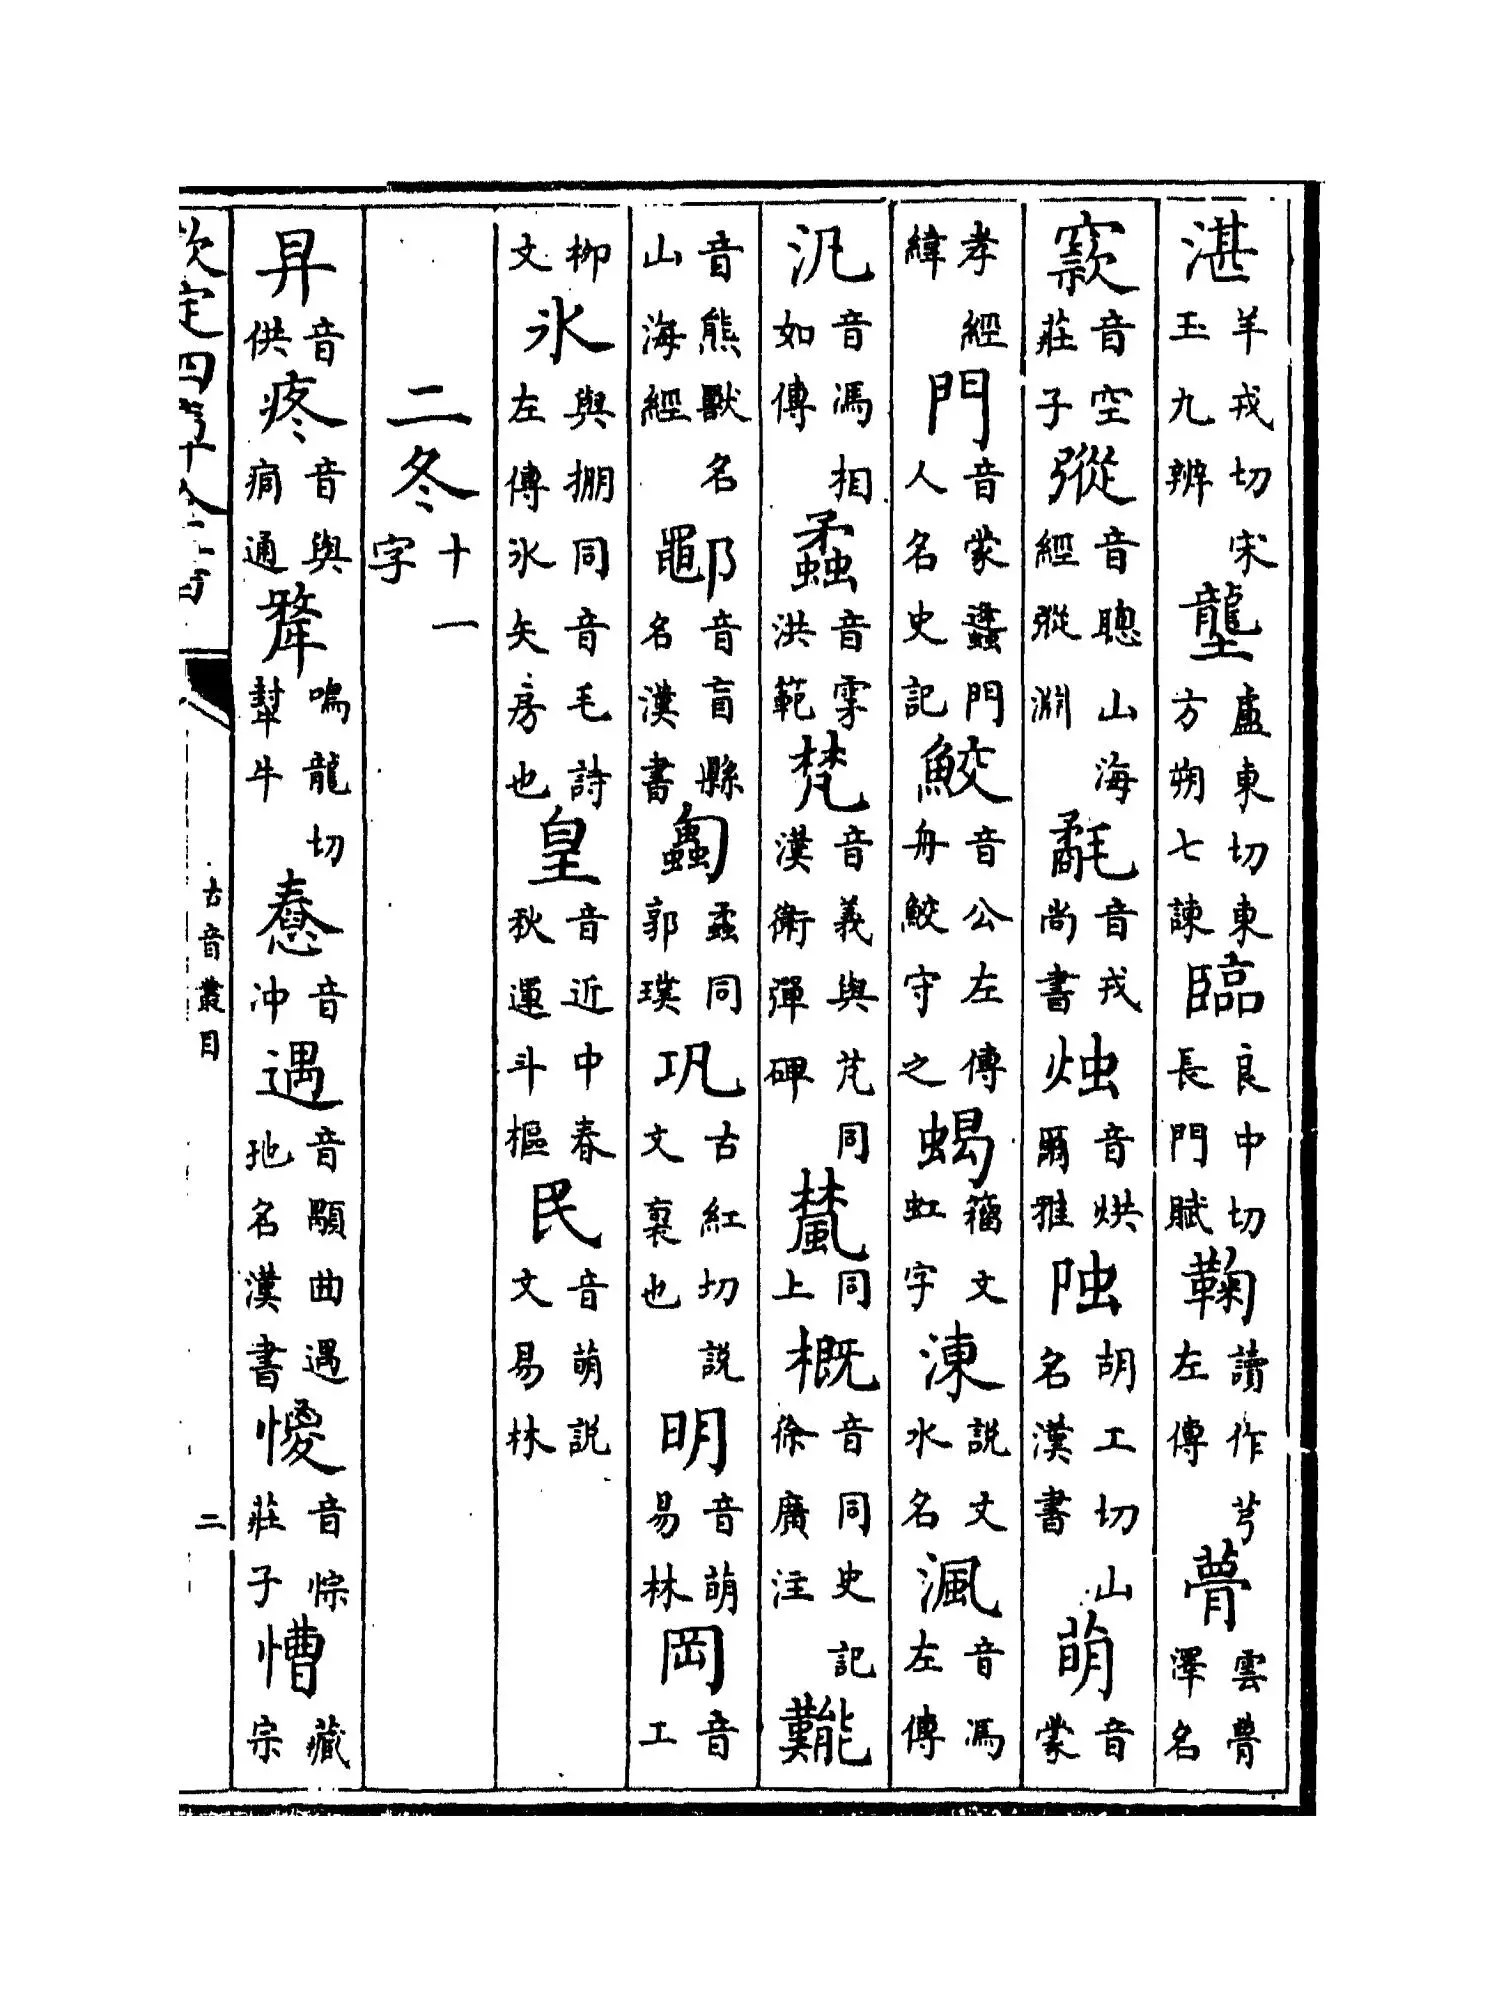 湛羊戎切宋玉九辨壟盧東切東方朔七諫臨良中切長門賦鞠讀作芎左傳瞢雲瞢澤名
窾音空莊子㢔音聰山海經㢔淵髶音戎尚書烛音烘爾雅胡工切山名漢書萌音蒙
孝經緯門音蒙蠭門人名史記鮫音公左傳舟鮫守之蝎籀文虹字涷說文水名渢音馮左傳
汎音馮相如傳蟊音雺洪範梵音義與芃同漢衛彈碑檒同上概音同史記徐廣注
音熊獸名山海經鄳音盲縣名漢書蟊同郭璞巩古紅切說文裹也明音萌易林岡音工
掤文氷與掤同音毛詩左傳氷矢房也皇音近中春秋運斗樞民音萌說文易林
二冬十一字
音供疼音與痌通鳴龍切犎牛憃音沖遇音顒曲遇地名漢書㥶音悰莊子慒藏宗
古音叢目
二